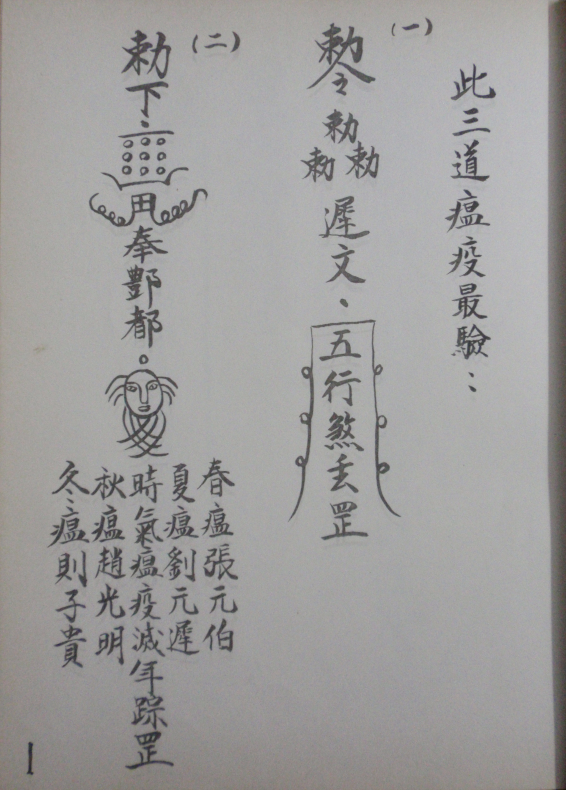 此三道瘟疫最驗：
（一）
勅令
勅
勅勅
遲文、
五行煞丢罡
（二）
勅下
田
奉酆都
春瘟張元伯
夏瘟劉元遲
時氣瘟疫滅年踪罡
秋瘟趙光明
冬瘟則子貴
1